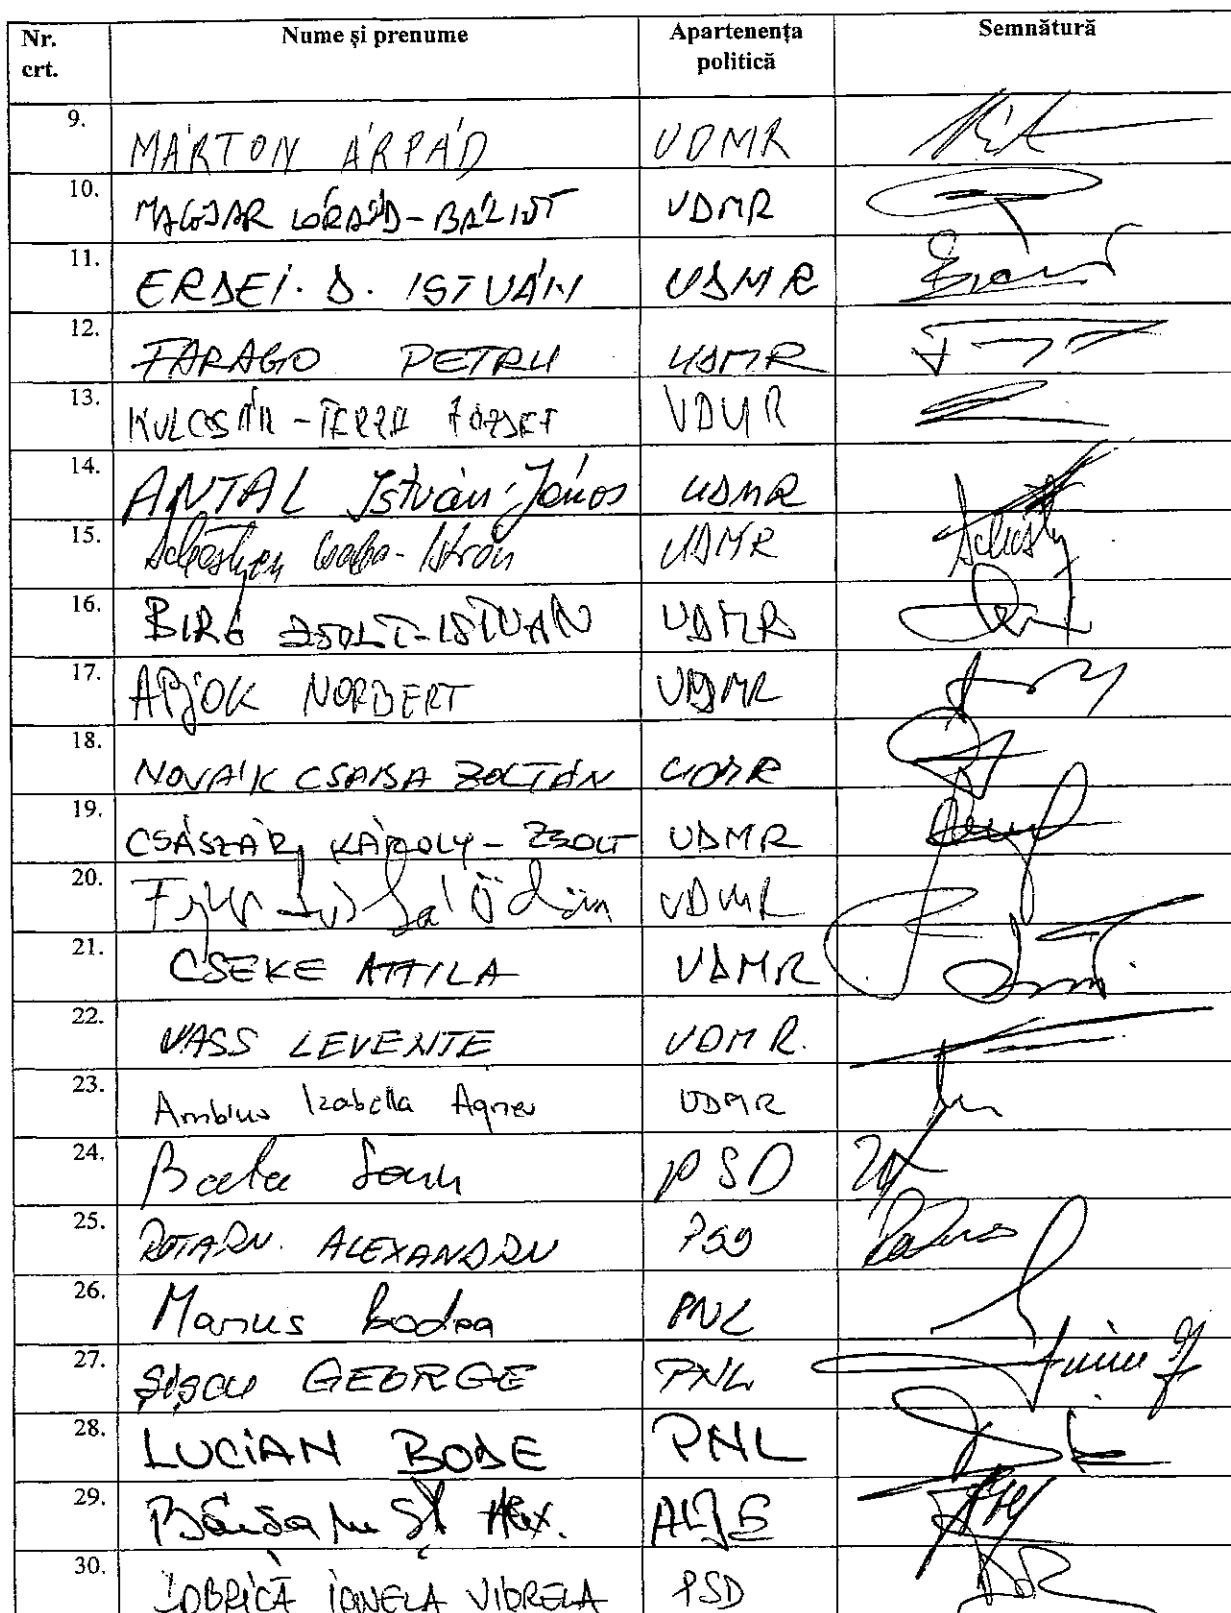 Nr. crt. Nume și prenume Apartenența politică Semnătură
9. MÁRTON ÁRPÁD UDMR
10. MAGYAR LÓRÁND-BÁLINT UDMR
11. ERDEI. D. ISTVÁN UDMR
12. FARAGO PETRU UDMR
13. KULCSÁR-TERZA JÓZSEF UDMR
14. ANTAL István-János UDMR
15. Sebestyen Csaba-István UDMR
16. BIRÓ ZSOLT-ISTVAN UDMR
17. APJOK NORBERT UDMR
18. NOVÁK CSABA ZOLTÁN UDMR
19. CSÁSZÁR KÁROLY-ZSOLT UDMR
20. UDMR
21. CSEKE ATTILA UDMR
22. VASS LEVENTE UDMR.
23. Ambrus Izabella Agnes UDMR
24. PSD
25. ROTARU. ALEXANDRU PSD
26. Marius Bodea PNL
27. ȘIȘCU GEORGE PNL
28. LUCIAN BODE PNL
29. ALDE
30. DOBRICĂ IONELA VIORELA PSD